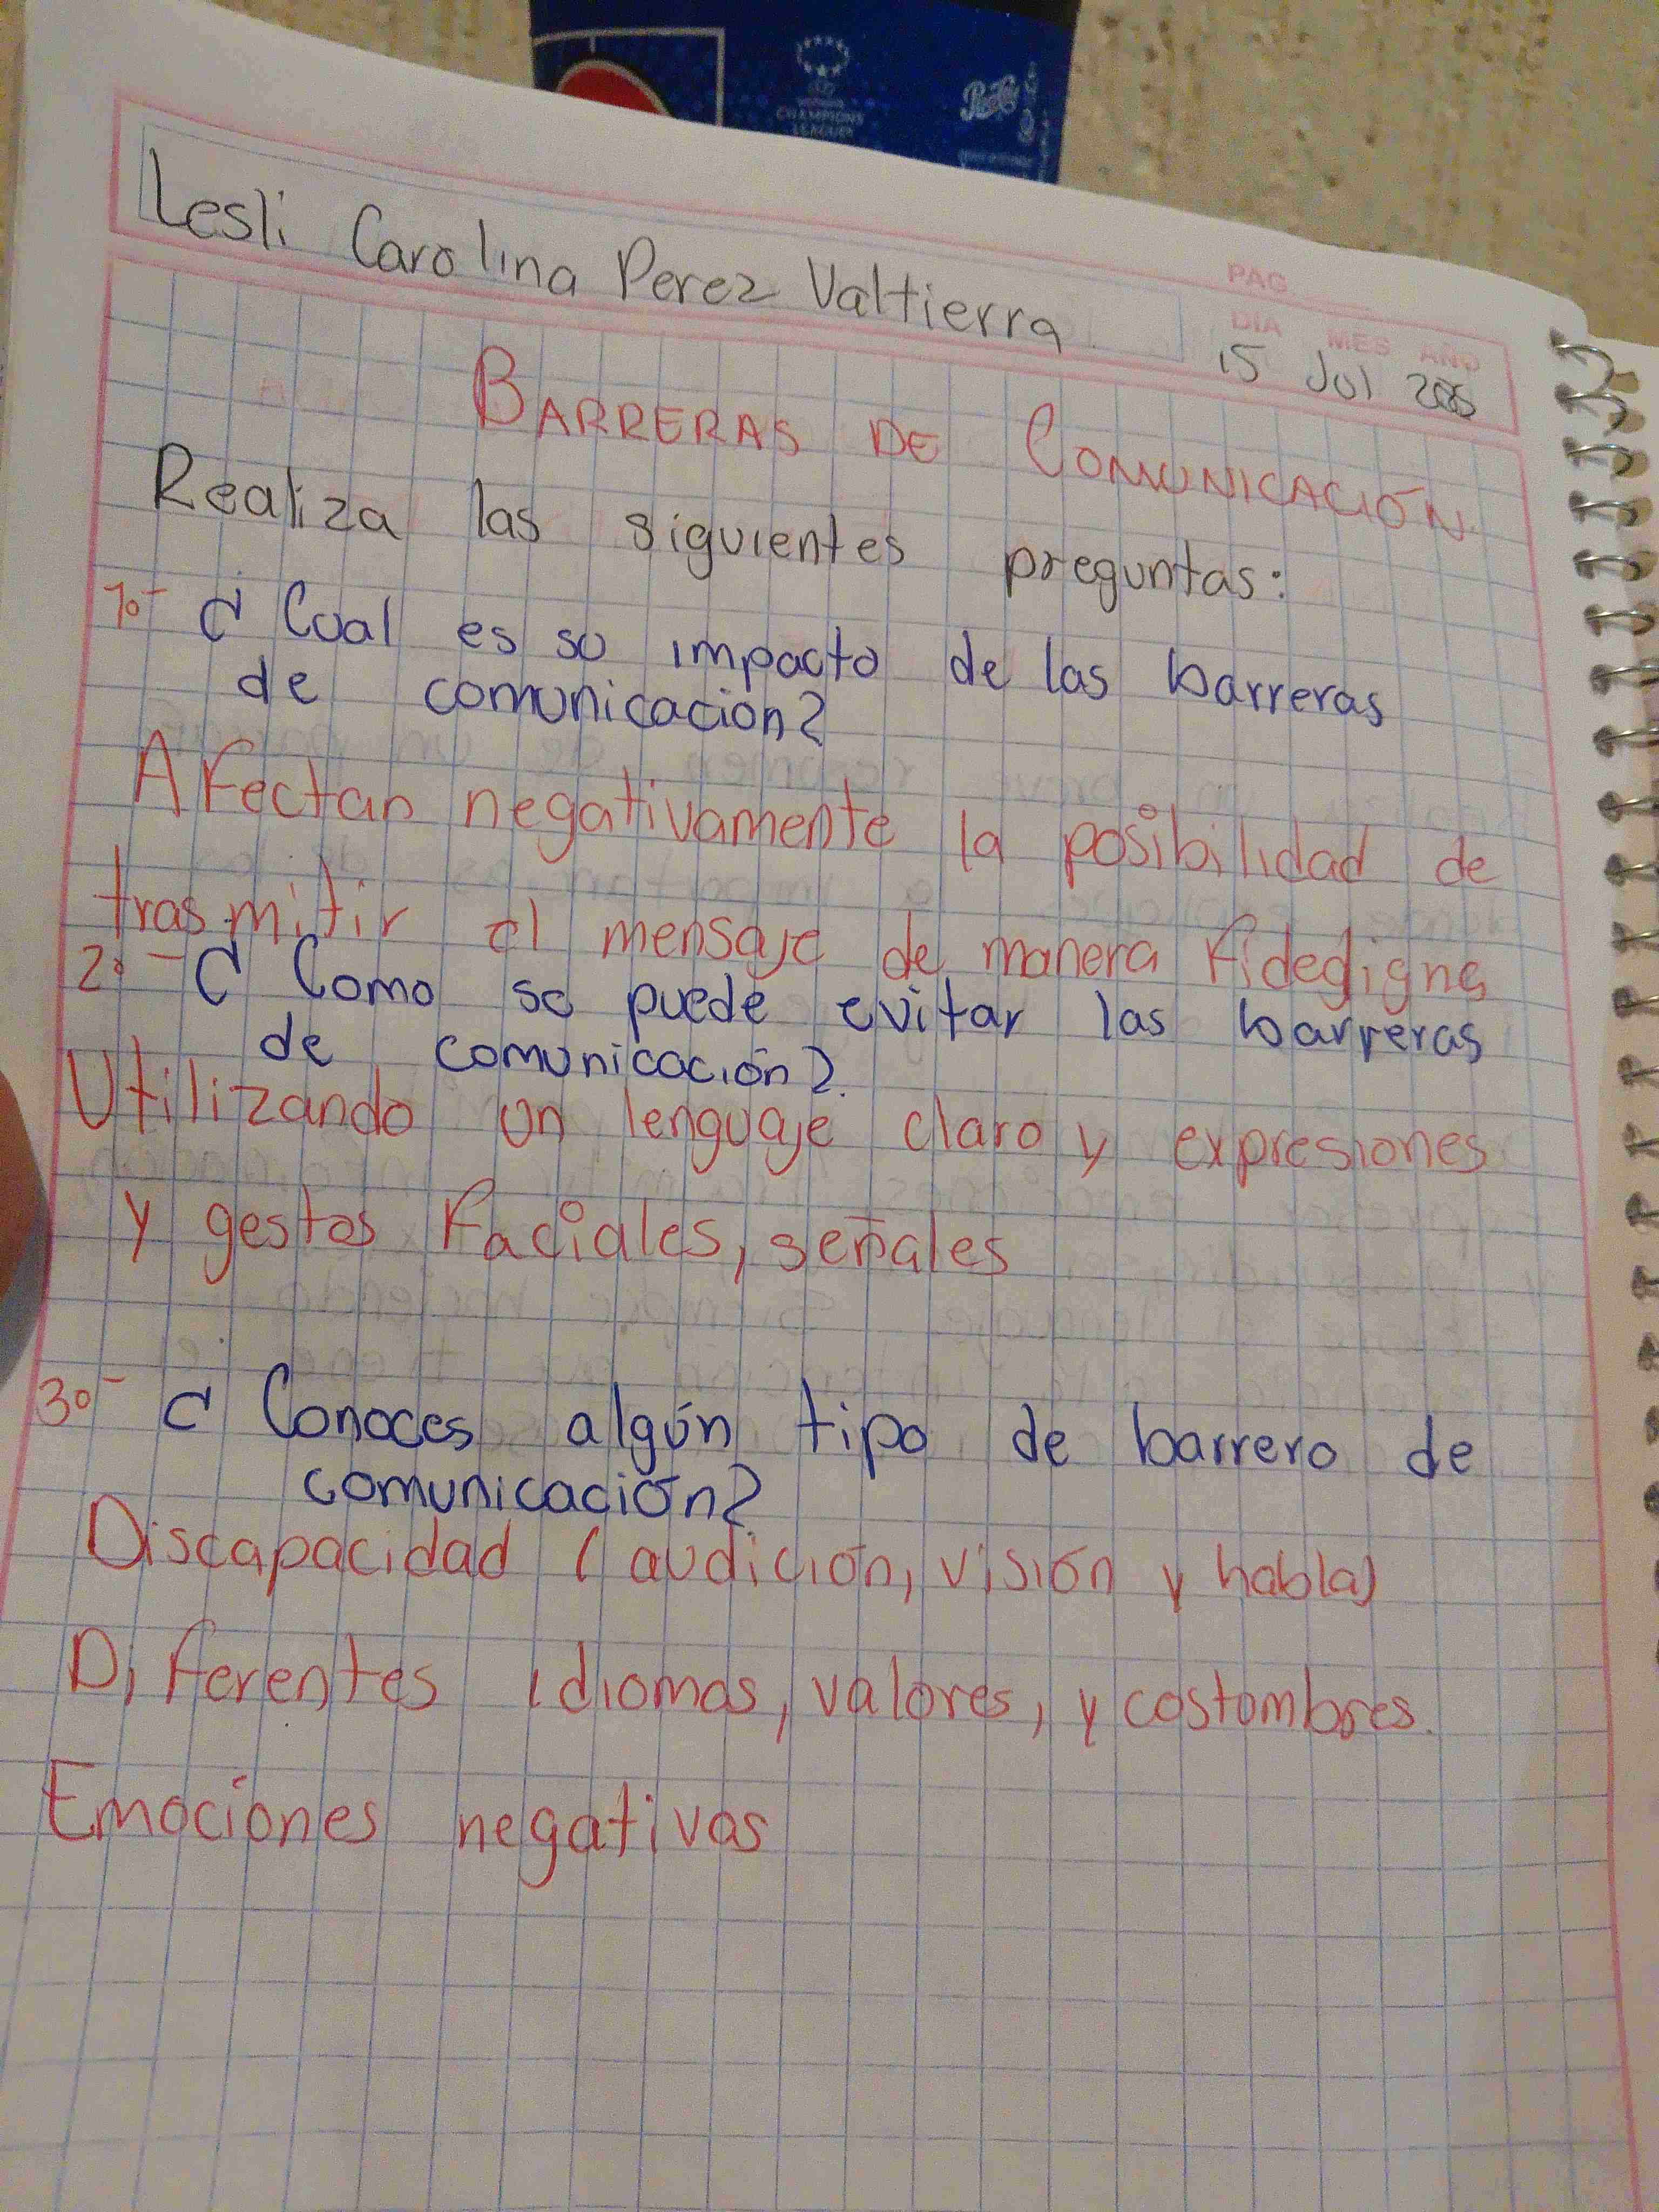 CHAMPIONS
LEAGUE
Pepsi
Lesli Carolina Perez Valtierra
PAG
DIA MES AÑO
15 Jul
BARRERAS DE COMUNICACIÓN
Realiza las siguientes preguntas:
1.- ¿Cual es su impacto de las barreras
de comunicación?
Afectan negativamente la posibilidad de
trasmitir el mensaje de manera fidedigna
2.- ¿Como se puede evitar las barreras
de comunicación?
Utilizando un lenguaje claro y expresiones
y gestos faciales, señales
3.- ¿Conoces algún tipo de barrero de
comunicación?
Discapacidad (audición, visión y habla)
Diferentes idiomas, valores, y costumbres.
Emociones negativas